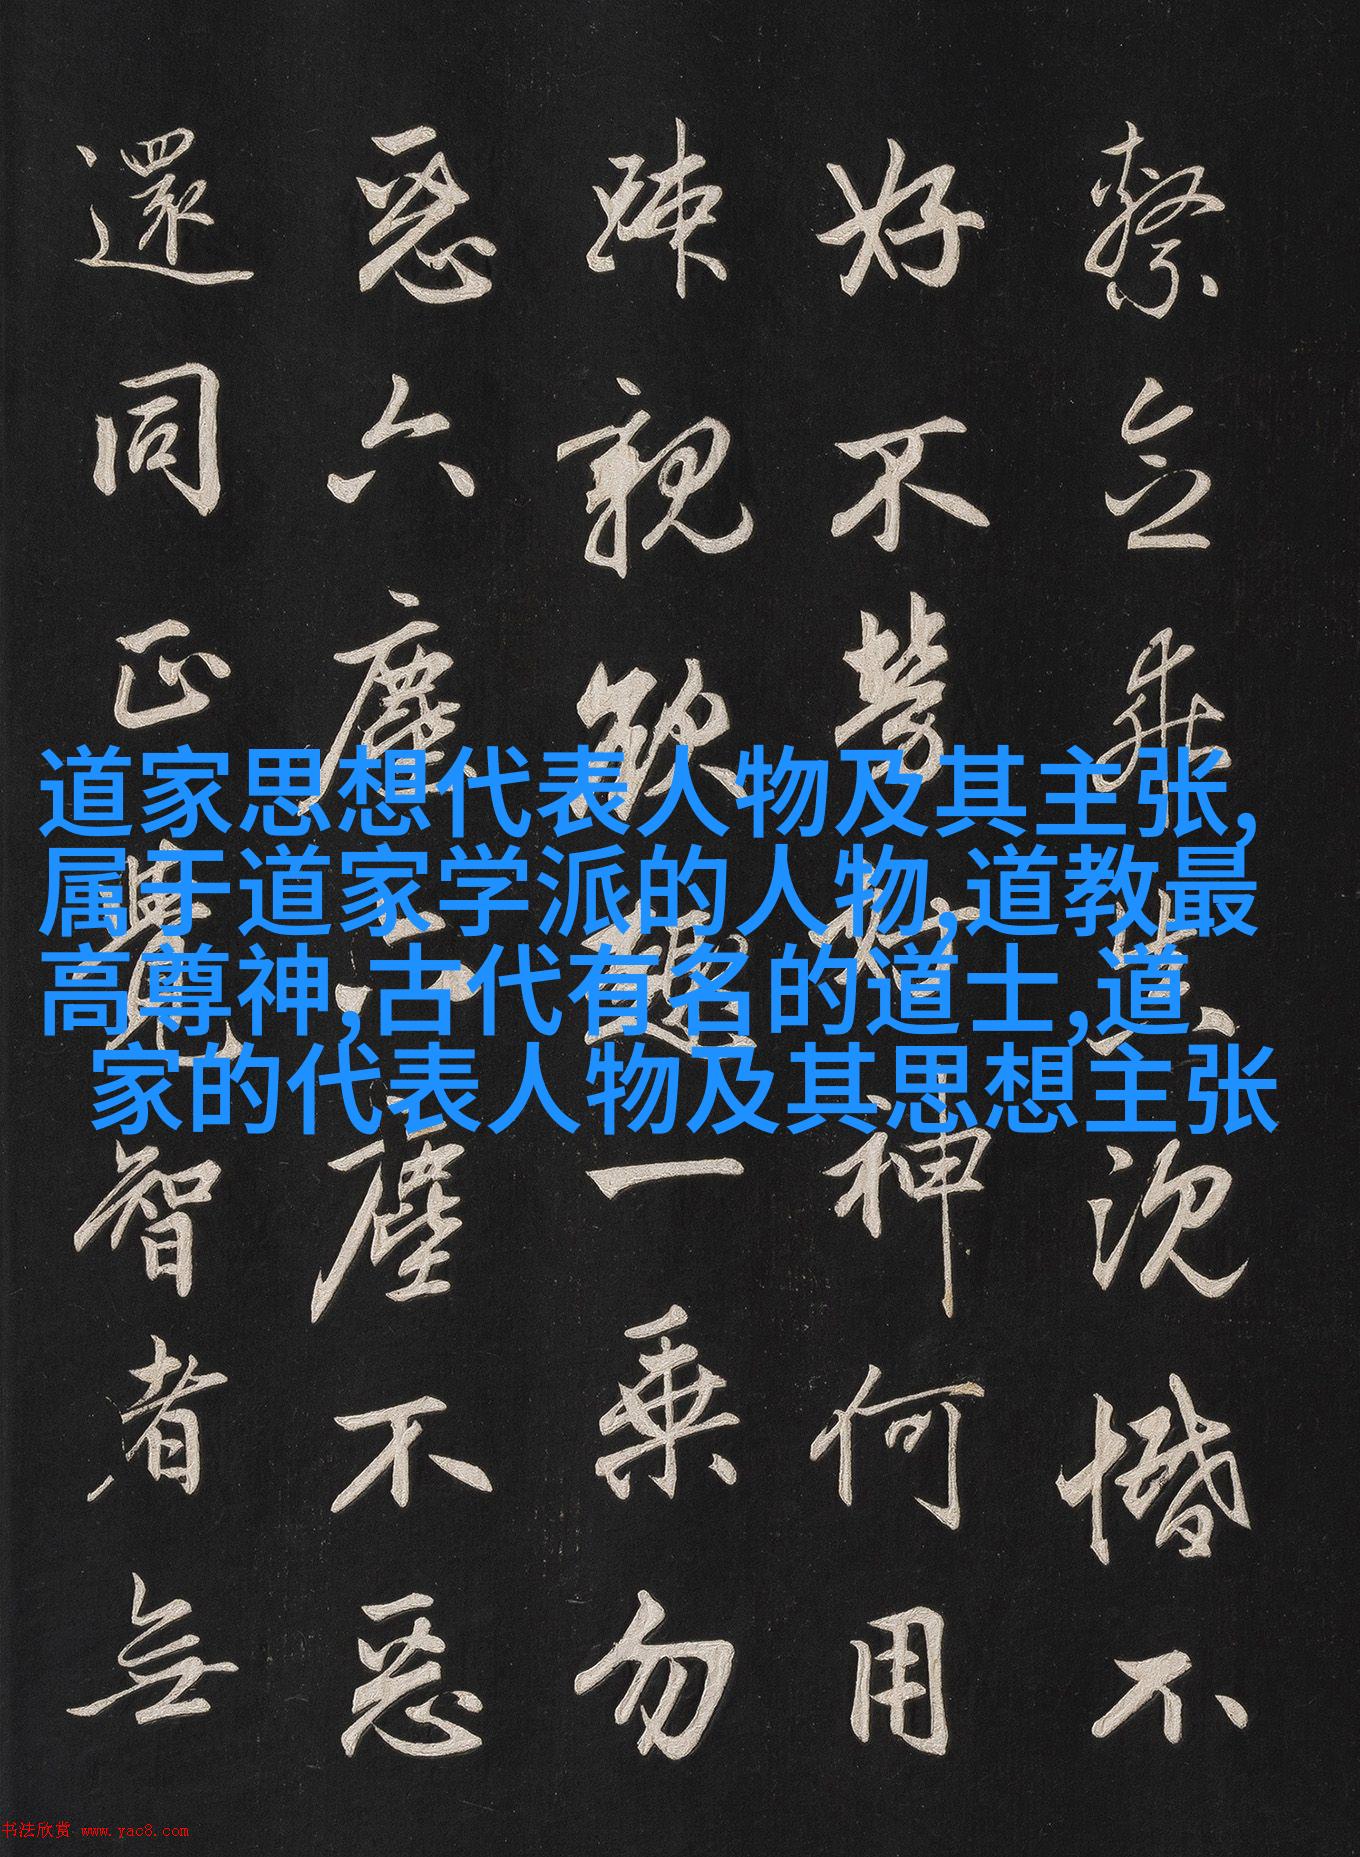 繫念乖真沉惛不
好不勞好神何用
疎親欲趣一乘勿
惡六塵六塵不惡
還同正覺智者無
道家思想代表人物及其主张,
属于道家学派的人物,道教最
高尊神,古代有名的道士,道
家的代表人物及其思想主张
书法欣赏 www.yac8.com